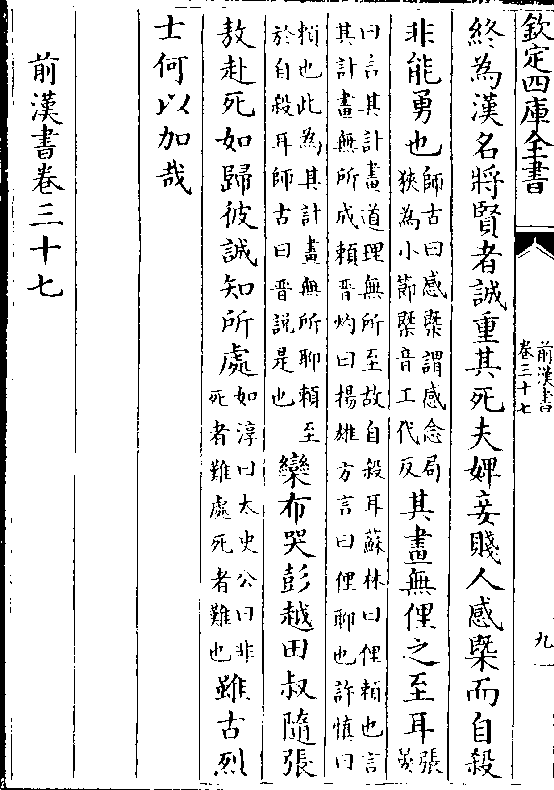 欽定四庫全書
前漢書
卷三十七
九
終為漢名將賢者誠重其死夫婢妾賤人感槩而自殺
非能勇也師古曰感槩謂感念局
狹為小節槩音工代反其畫無俚之至耳張
晏
曰言其計畫道理無所至故自殺耳蘇林曰俚賴也言
其計畫無所成賴晋灼曰揚雄方言曰俚聊也許慎曰
賴也此為其計畫無所聊賴至
於自殺耳師古曰晋説是也欒布哭彭越田叔隨張
敖赴死如歸彼誠知所處如淳曰太史公曰非
死者難處死者難也雖古烈
士何以加哉
前漢書卷三十七